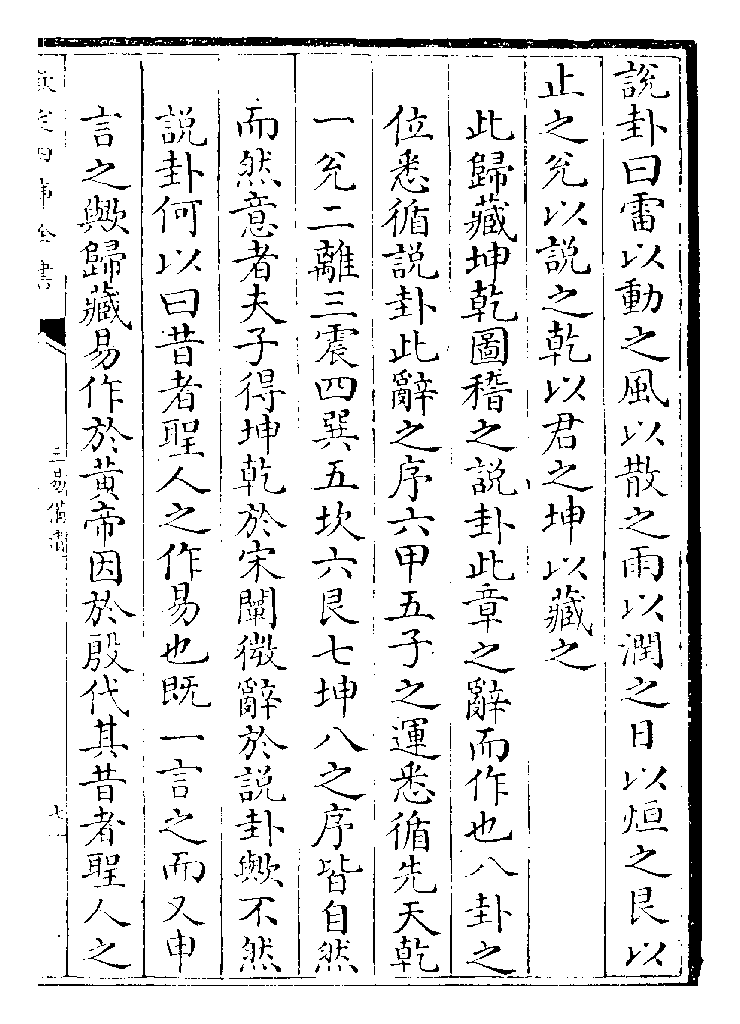 說卦曰雷以動之風以散之雨以潤之日以烜之艮以
止之兊以説之乾以君之坤以藏之
此歸藏坤乾圖稽之説卦此章之辭而作也八卦之
位悉循説卦此辭之序六甲五子之運悉循先天乾
一兊二離三震四巽五坎六艮七坤八之序皆自然
而然意者夫子得坤乾於宋闡微辭於説卦歟不然
説卦何以曰昔者聖人之作易也既一言之而又申
言之歟歸藏易作於黄帝因於殷代其昔者聖人之
欽定四庫全書
三易備遺